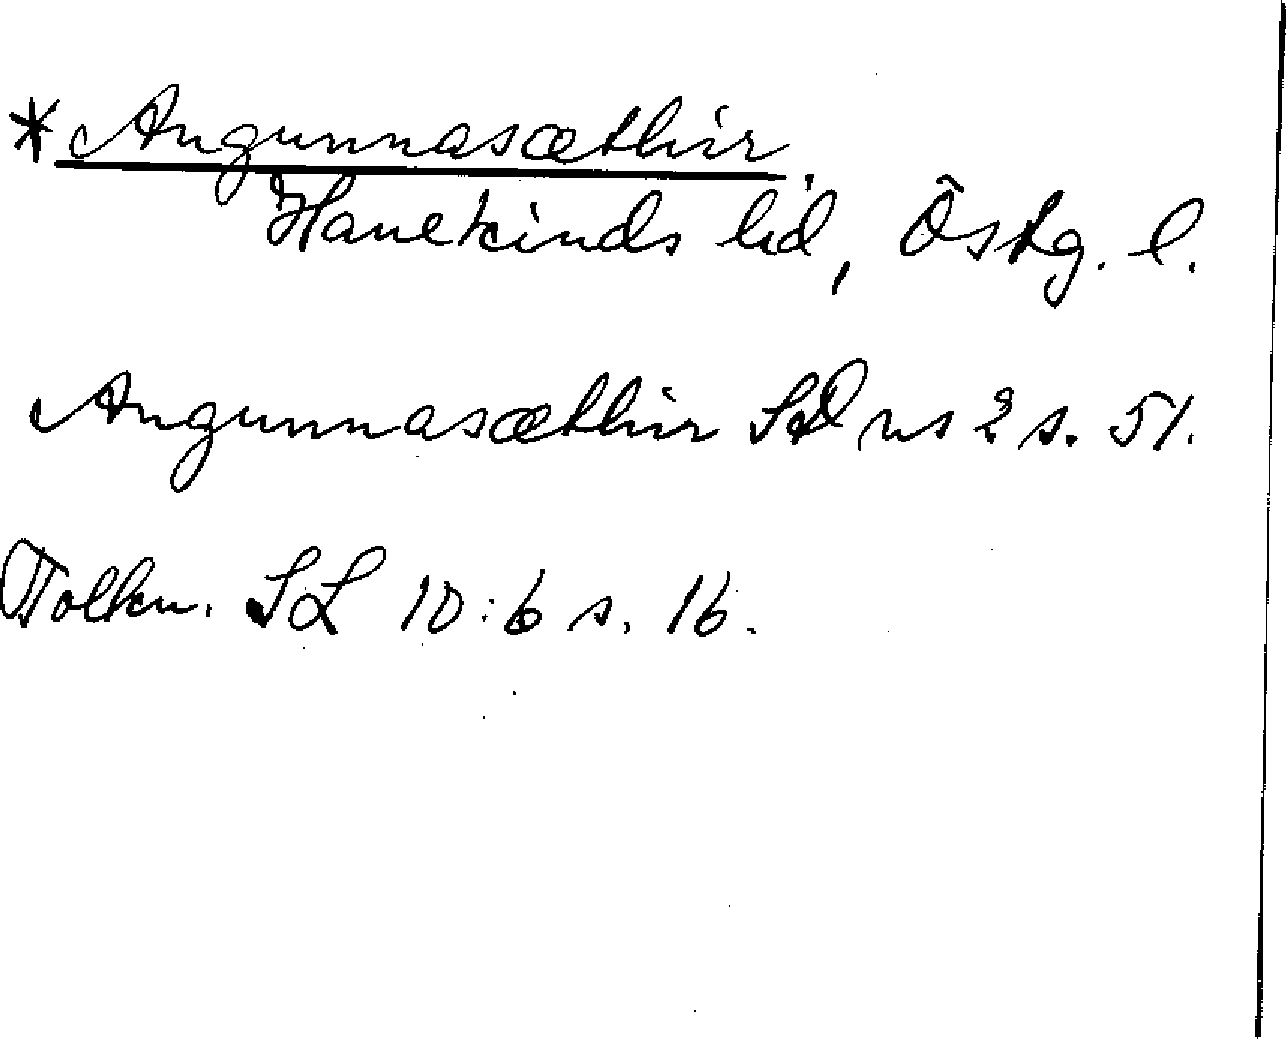 *Angunnasæthir.
Hanekinds hd, Östg. l.
Angunnasæthir SD ns 2 s. 51.
Tolkn. SL 10:6 s. 16.